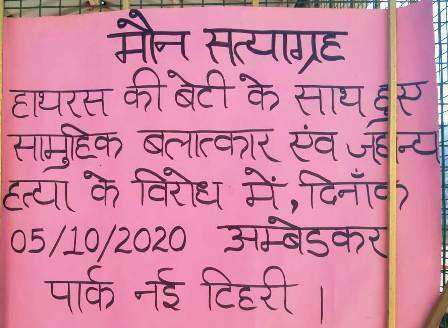 मौन सत्याग्रह
हाथरस की बेटी के साथ हुए
सामुहिक बलात्कार एंव जहन्य
हत्या के विरोध में, दिनाँक
05/10/2020 अम्बेडकर
पार्क नई टिहरी ।